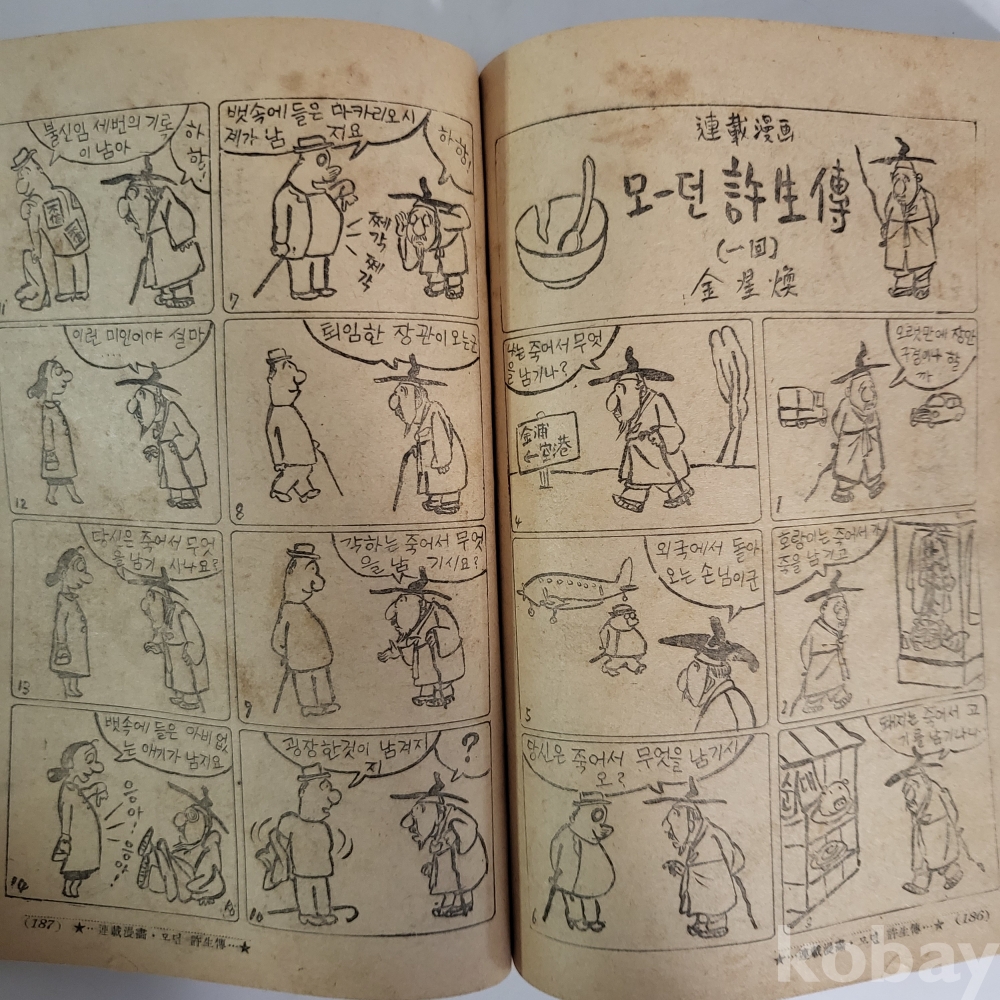 連載漫画
모-던 許生傳
(一回)
金星煥
오랫만에 장안
구경이나 할
까
1
호랑이는 죽어서 가
죽을 남기고
2
돼지는 죽어서 고
기를 남기나니
순대
나는 죽어서 무엇
을 남기나?
金浦
←空港
4
외국에서 돌아
오는 손님이군
5
당신은 죽어서 무엇을 남기시
오?
6
뱃속에 들은 마카리오시
계가 남 지요
하핫
쩨각 쩨각
7
퇴임한 장관이 오는군
8
각하는 죽어서 무엇
을 남 기시요?
9
굉장한것이 남겨지
지
?
10
불신임 세번의 기록
이 남아
하핫
11
이런 미인이야 설마
……
12
당신은 죽어서 무엇
을 남기 시나요?
13
뱃속에 들은 아비 없
는 애기가 남지요
응아! 응아!
14
(186)
★…連載漫畫・모던 許生傳…★
(187)
★…連載漫畫・모던 許生傳…★
kobay